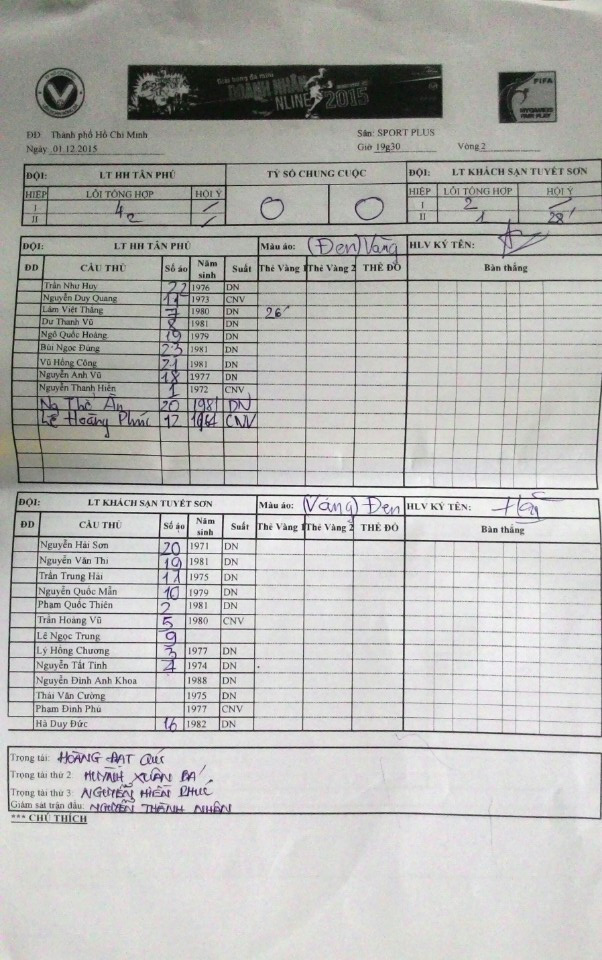 Giải bóng đá mini
DOANH NHÂN
NLINE 2015
FIFA
MY GAME IS FAIR PLAY
ĐD Thành phố Hồ Chí Minh Sân: SPORT PLUS
Ngày 01.12.2015 Giờ 19g30 Vòng 2
ĐỘI: LT HH TÂN PHÚ TỶ SỐ CHUNG CUỘC ĐỘI: LT KHÁCH SẠN TUYẾT SƠN
HIỆP LỖI TỔNG HỢP HỘI Ý 0 0 HIỆP LỖI TỔNG HỢP HỘI Ý
I 4 / I 2 /
II 2 / II 1 28'
ĐỘI: LT HH TÂN PHÚ Màu áo: (Đen) Vàng HLV KÝ TÊN:
ĐD CẦU THỦ Số áo Năm sinh Suất Thẻ Vàng 1 Thẻ Vàng 2 THẺ ĐỎ Bàn thắng
Trần Như Huy 22 1976 DN
Nguyễn Duy Quang 11 1973 CNV
Lâm Việt Thắng 7 1980 DN 26'
Dư Thanh Vũ 8 1981 DN
Ngô Quốc Hoàng 19 1979 DN
Bùi Ngọc Dũng 23 1981 DN
Vũ Hồng Công 21 1981 DN
Nguyễn Anh Vũ 18 1977 DN
Nguyễn Thanh Hiền 1 1972 CNV
Ng Thế Ân 20 1981 DN
Lê Hoàng Phúc 12 1964 CNV
ĐỘI: LT KHÁCH SẠN TUYẾT SƠN Màu áo: (Vàng) Đen HLV KÝ TÊN:
ĐD CẦU THỦ Số áo Năm sinh Suất Thẻ Vàng 1 Thẻ Vàng 2 THẺ ĐỎ Bàn thắng
Nguyễn Hải Sơn 20 1971 DN
Nguyễn Văn Thi 19 1981 DN
Trần Trung Hải 11 1975 DN
Nguyễn Quốc Mẫn 10 1979 DN
Phạm Quốc Thiên 2 1981 DN
Trần Hoàng Vũ 5 1980 CNV
Lê Ngọc Trung 9
Lý Hồng Chương 3 1977 DN
Nguyễn Tất Tinh 7 1974 DN
Nguyễn Đình Anh Khoa 1988 DN
Thái Văn Cường 1975 DN
Phạm Đình Phú 1977 CNV
Hà Duy Đức 16 1982 DN
Trọng tài: HOÀNG ĐẠT ĐỨC
Trọng tài thứ 2: HUỲNH XUÂN BÁ
Trọng tài thứ 3: NGUYỄN HIỀN PHÚC
Giám sát trận đấu: NGUYỄN THÀNH NHÂN
*** CHÚ THÍCH